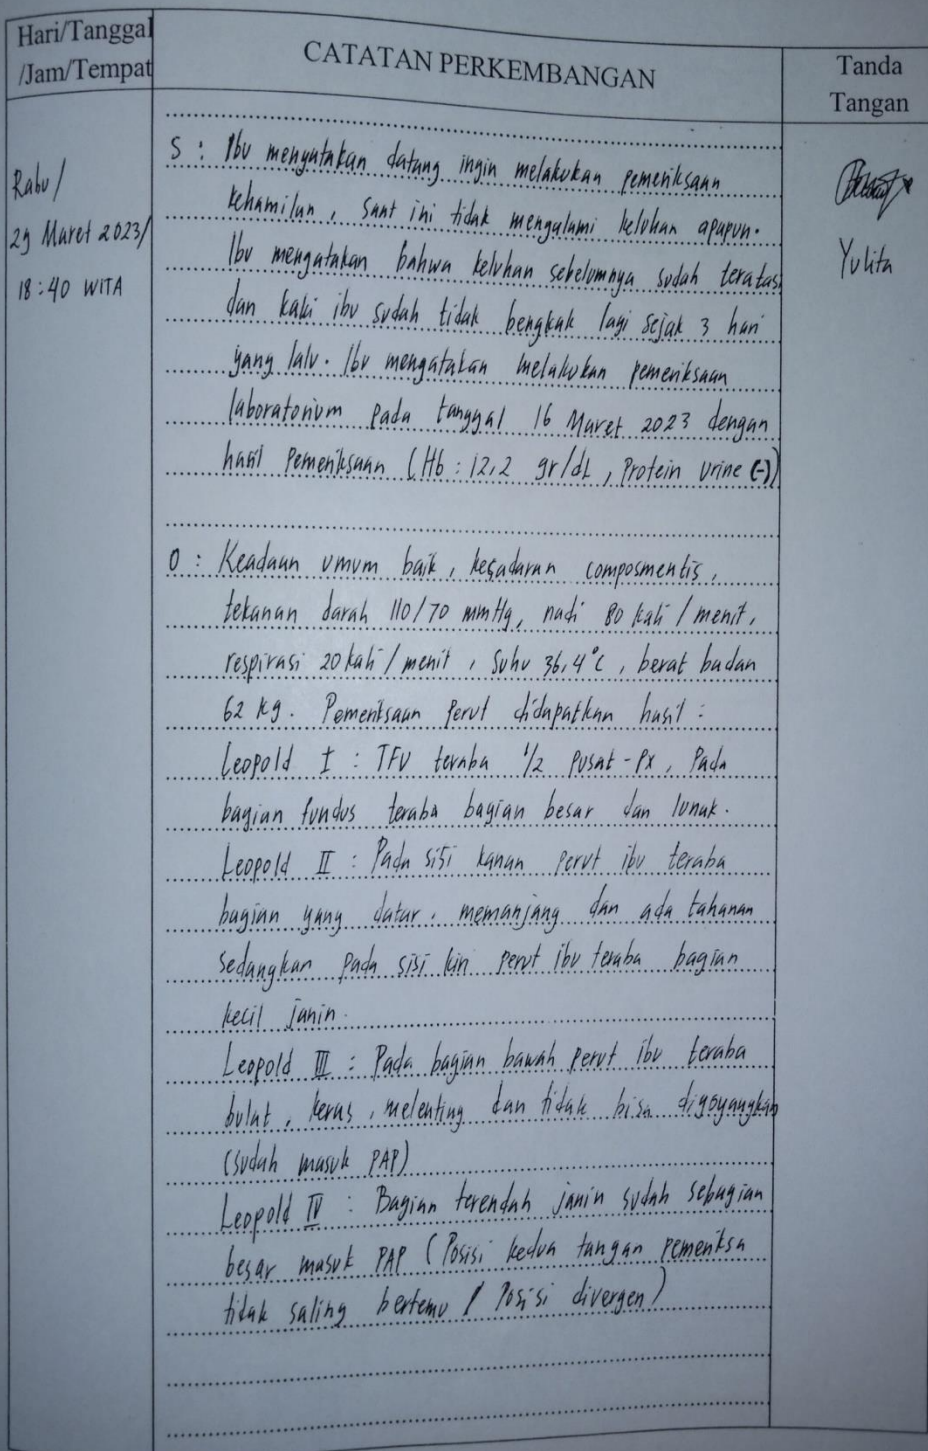 Hari/Tanggal
/Jam/Tempat
CATATAN PERKEMBANGAN
Tanda
Tangan
Rabu/
29 Maret 2023/
18:40 WITA
S : Ibu menyatakan datang ingin melakukan pemeriksaan
kehamilan, saat ini tidak mengalami keluhan apapun.
Ibu mengatakan bahwa keluhan sebelumnya sudah teratasi
dan kaki ibu sudah tidak bengkak lagi sejak 3 hari
yang lalu. Ibu mengatakan melakukan pemeriksaan
laboratorium pada tanggal 16 Maret 2023 dengan
hasil pemeriksaan (Hb : 12,2 gr/dL, Protein urine (-))
Yulita
O : Keadaan umum baik, kesadaran composmentis,
tekanan darah 110/70 mmHg, nadi 80 kali/menit,
respirasi 20 kali/menit, Suhu 36,4°C, berat badan
62 kg. Pemeriksaan perut didapatkan hasil :
Leopold I : TFU teraba 1/2 pusat-Px, Pada
bagian fundus teraba bagian besar dan lunak.
Leopold II : Pada sisi kanan perut ibu teraba
bagian yang datar, memanjang dan ada tahanan
sedangkan pada sisi kiri perut ibu teraba bagian
kecil janin.
Leopold III : Pada bagian bawah perut ibu teraba
bulat, keras, melenting dan tidak bisa digoyangkan
(sudah masuk PAP)
Leopold IV : Bagian terendah janin sudah sebagian
besar masuk PAP (Posisi kedua tangan pemeriksa
tidak saling bertemu / Posisi divergen)